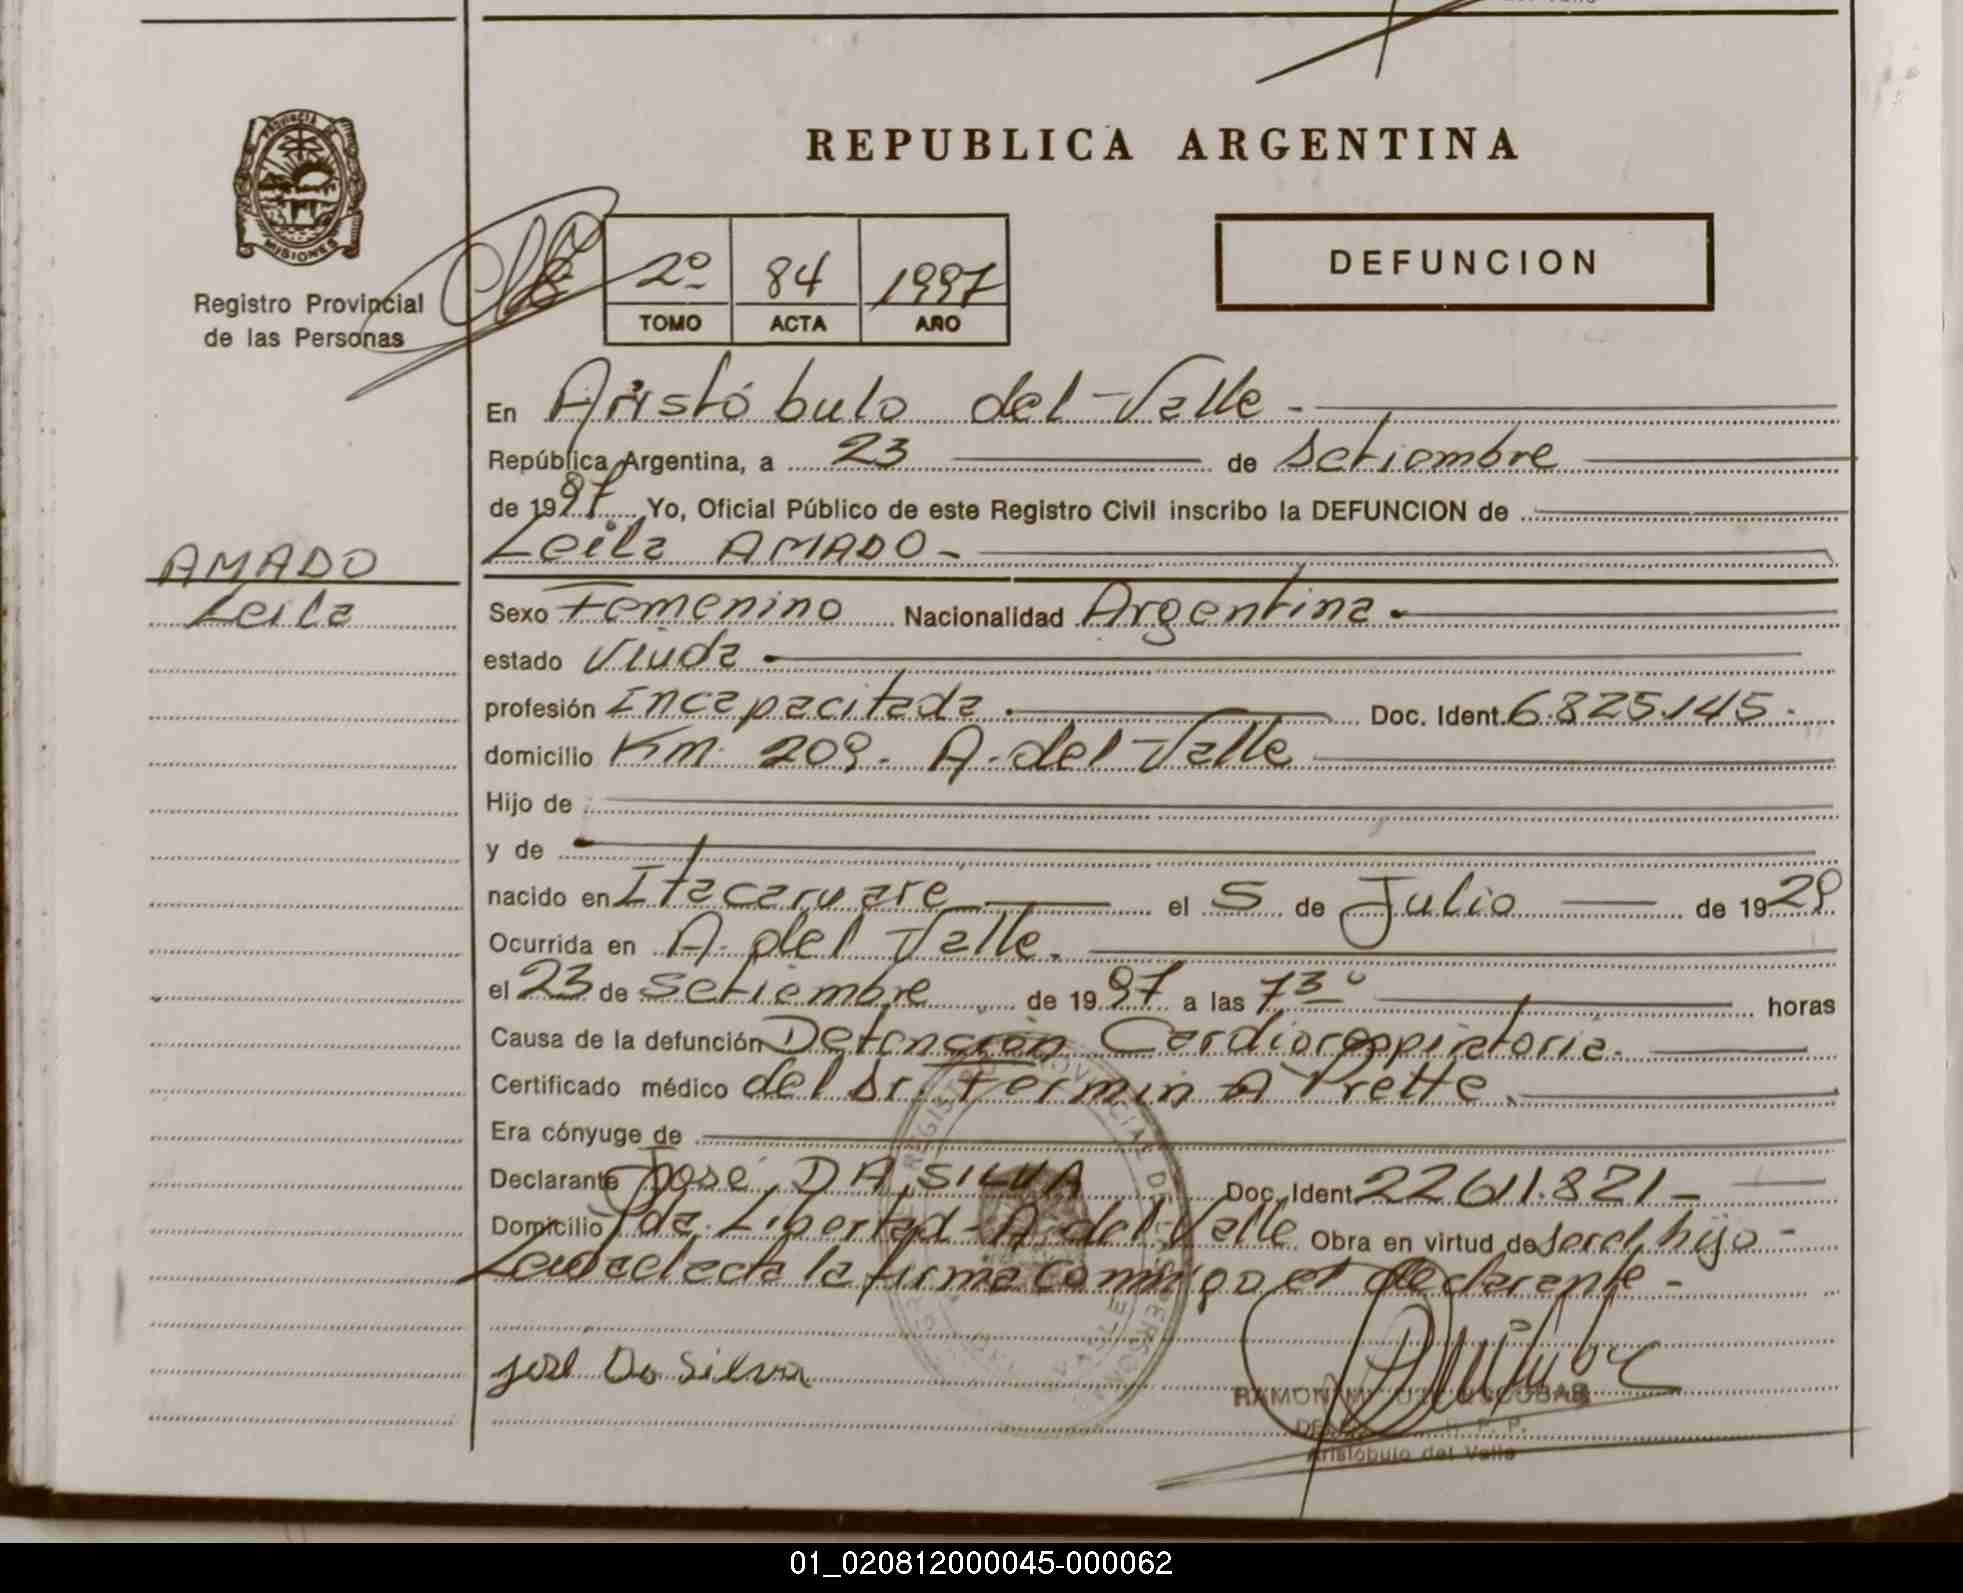 REPUBLICA ARGENTINA
PROVINCIA DE
MISIONES
Registro Provincial
de las Personas
2º 84 1997
TOMO ACTA AÑO
DEFUNCION
En Aristóbulo del Valle -
República Argentina, a 23 de Setiembre
de 1997 Yo, Oficial Público de este Registro Civil inscribo la DEFUNCION de
Leila AMADO -
AMADO
Leila
Sexo Femenino Nacionalidad Argentina.
estado Viuda.
profesión Incapacitada. Doc. Ident. 6.825.145.
domicilio Km. 209. A. del Valle
Hijo de
y de
nacido en Itacaruare el 5 de Julio de 1929
Ocurrida en A. del Valle.
el 23 de Setiembre de 1997 a las 7 30 horas
Causa de la defunción Detención Cardiorespiratoria.
Certificado médico del Dr. Fermin A Prette.
Era cónyuge de
Declarante José DA SILVA Doc. Ident. 22611.821 -
Domicilio Pda. Libertad - A. del Valle Obra en virtud de ser el hijo -
Leida el acta la firma conmigo el declarante -
José Da Silva
RAMON ESCOBAR
R. P. P.
Aristóbulo del Valle
01_020812000045-000062